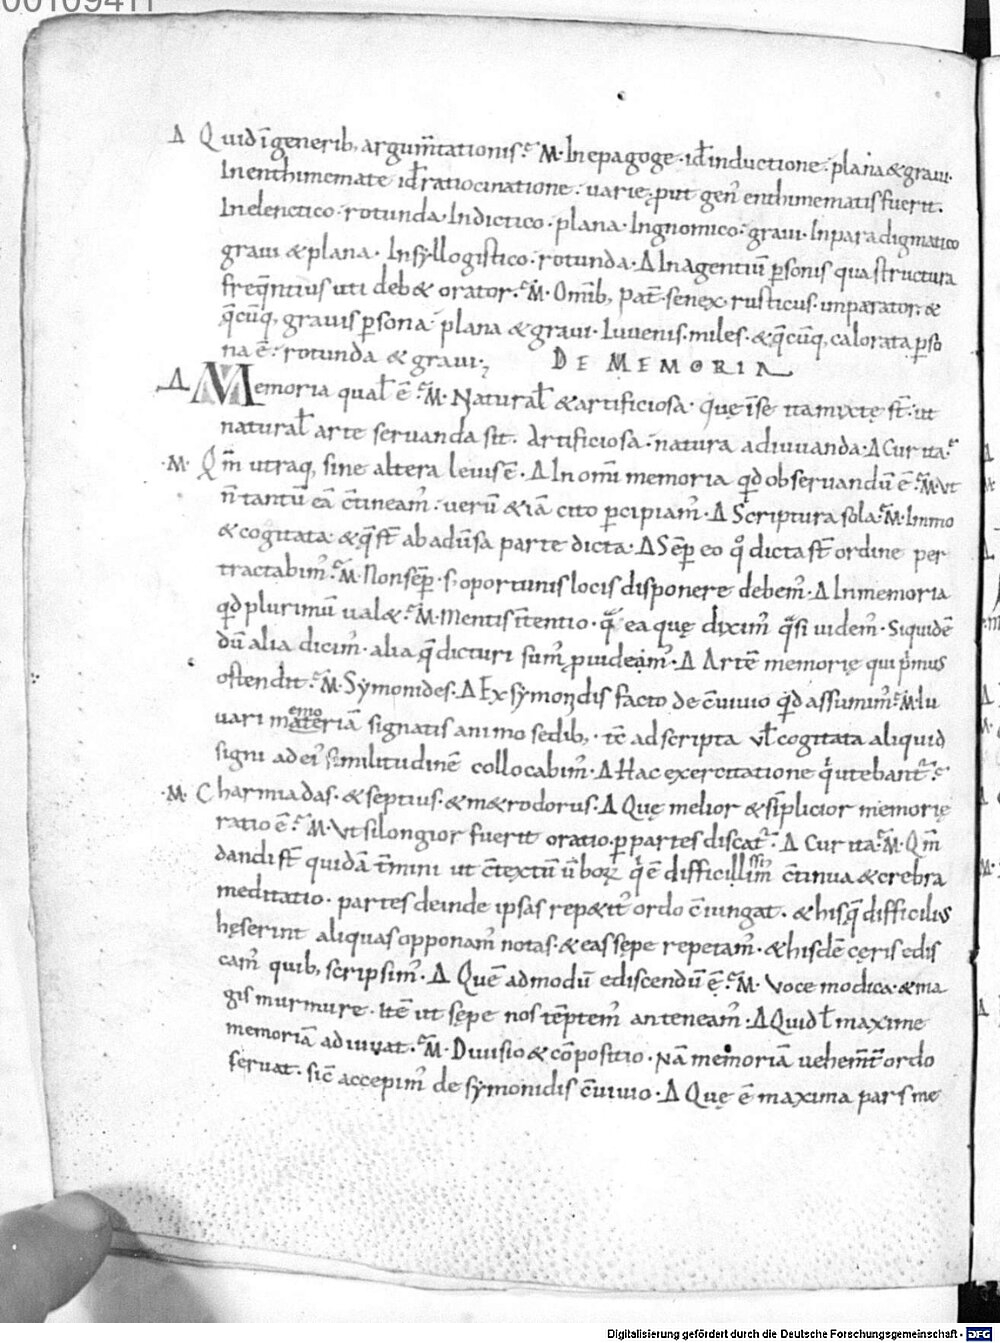 00109411
Δ Quid ī generib, argum̄tationis? M. In epagoge · id ē inductione · plana & graui.
In enthimemate id ē ratiocinatione · uarie, put gen̄ enthimematis fuerit.
In elenctico · rotunda. In dictico · plana. In gnomico · graui. In paradigmatico
graui & plana. In syllogistico · rotunda. Δ In agentiū psonis qua structura
freq̄ntius uti deb& orator? M. Om̄ib, pat̄ · senex · rusticus · imparator · &
q̄cūq, grauis psona · plana & graui. Iuuenis · miles · & q̄cūq, calorata pso
na ē · rotunda & graui; DE MEMORIA
Δ Memoria qual̄ ē? M. Natural̄ & artificiosa · quę ī se ita mixtę st̄ · ut
natural̄ arte seruanda sit. Artificiosa · natura adiuuanda. Δ Cur ita?
M. Qm̄ utraq, sine altera leuis ē. Δ In om̄i memoria qd obseruandū ē? M. Ut
n̄ tantū eā c̄tineam̄ · uerū & iā cito pcipiam̄. Δ Scriptura sola? M. Immo
& cogitata & q̄ st̄ ab aduersa parte dicta. Δ Sēp eo qͦ dicta st̄ ordine per
tractabim̄? M. Non sēp · s; oportunis locis disponere debem̄. Δ In memoria
qd plurimū ual&? M. Mentis ītentio · q̄ ea quę dixim̄ q̄si uidem̄. Siquidē
dū alia dicim̄ · alia q̄ dicturi sum̄ puideam̄. Δ Artē memorię qui pmus
ostendit? M. Symonides. Δ Ex symonidis facto de c̄uiuio qd assumim̄? M. Iu
uari memoriā signatis animo sedib, · itē ad scripta ul̄ cogitata aliquid
signi ad ei similitudinē collocabim̄. Δ Hac exercitatione q utebant̄?
M. Charmiadas · & septius · & m&rodorus. Δ Quę melior & sīplicior memorię
ratio ē? M. Ut si longior fuerit oratio · p partes discat̄. Δ Cur ita? M. Qm̄
dandi st̄ quidā t̄mini ut c̄textū ūborȝ q ē difficillim̄ c̄tinua & crebra
meditatio · partes deinde ipsas rep&it ordo c̄iungat · & his q̄ difficilius
hęserint aliquas opponam̄ notas · & eas sępe repetam̄ · & hisdē cęris edis
cam̄ quib, scripsim̄. Δ Quē admodū ediscendū ē? M. Voce modica · & ma
gis murmure. Itē ut sępe nos tēptem̄ an teneam̄. Δ Quid l̄ maxime
memoriā adiuuat? M. Diuisio & cōpositio · Nā memoriā uehem̄t ordo
seruat · sic̄ accepim̄ de symonidis c̄uiuio. Δ Quę ē maxima pars me
Digitalisierung gefördert durch die Deutsche Forschungsgemeinschaft - DFG